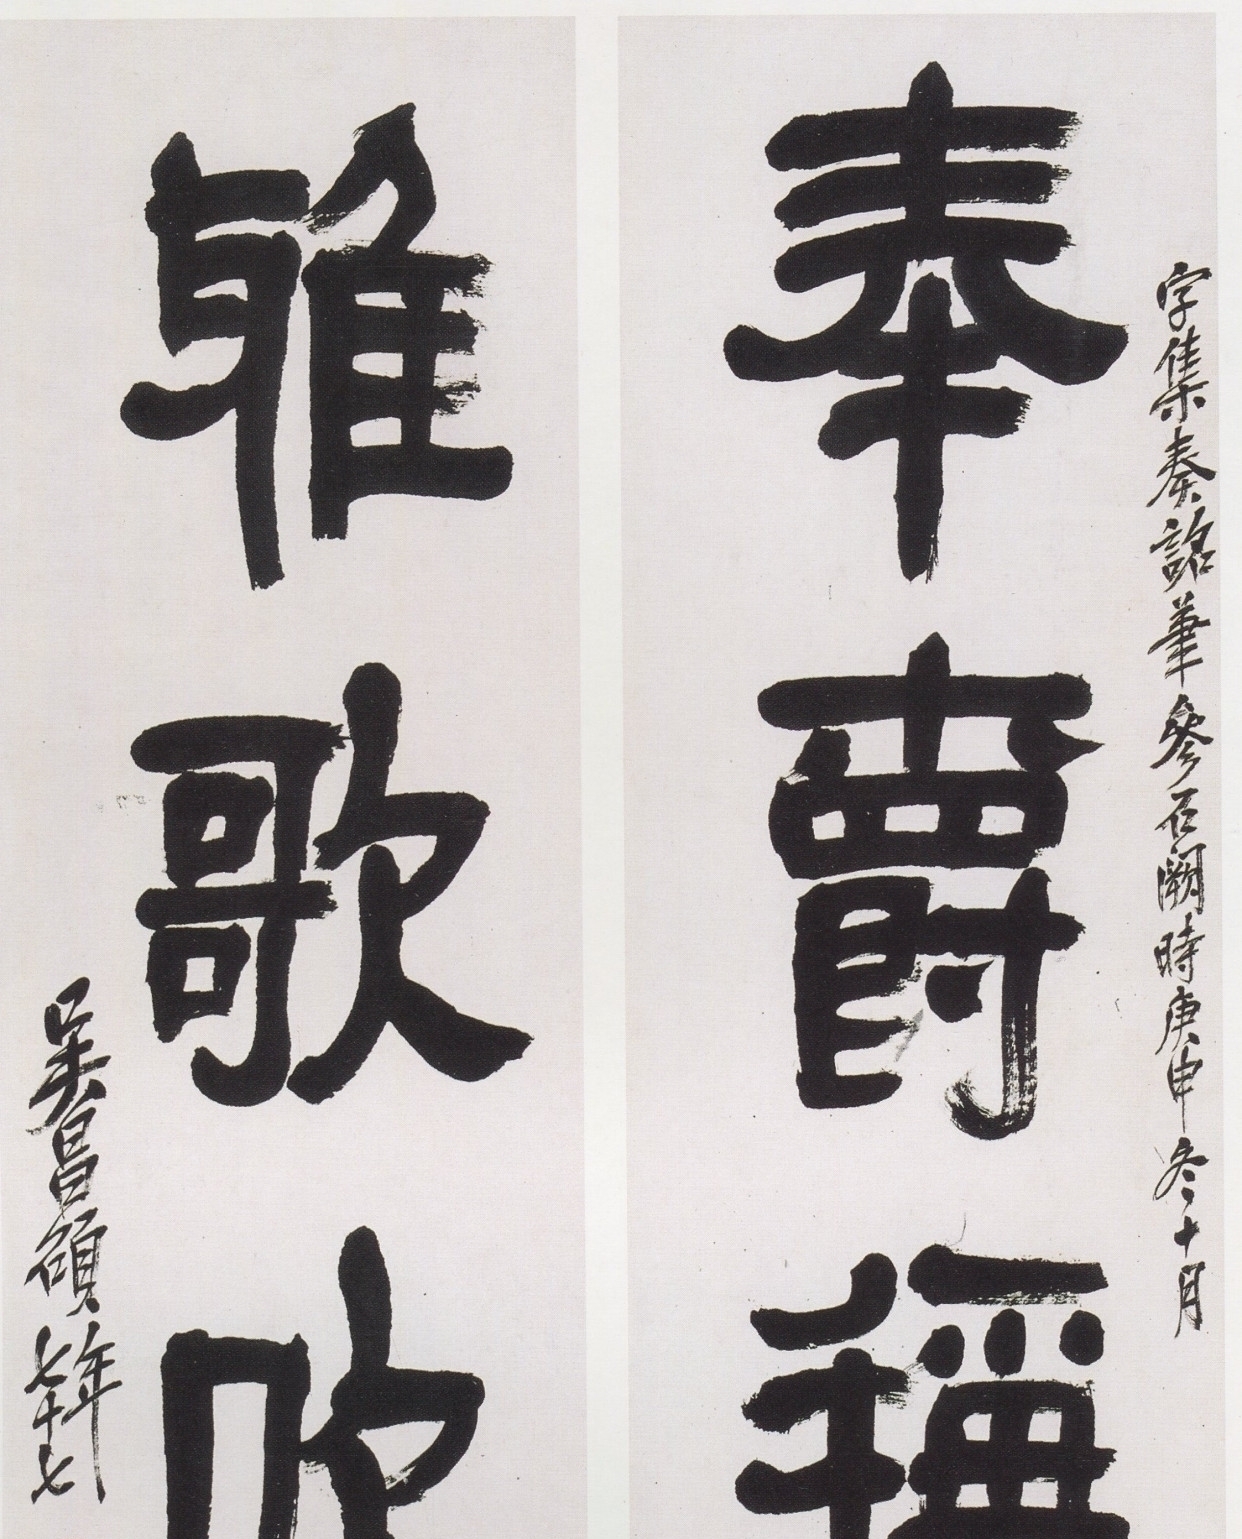 字集秦詔筆參石闕時庚申冬十月
奉爵稱
雅歌吹
吳昌碩年七十七